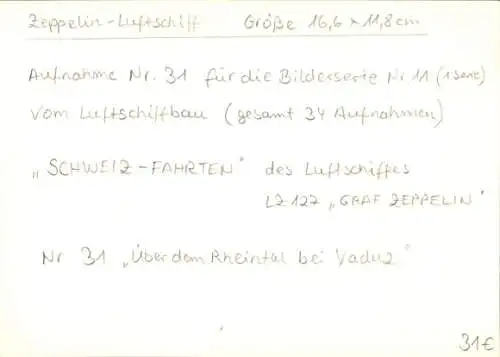 Zeppelin-Luftschiff Größe 16,6 x 11,8 cm
Aufnahme Nr. 31 für die Bilderserie Nr 11 (1 Serie)
vom Luftschiffbau (gesamt 34 Aufnahmen)
„SCHWEIZ-FAHRTEN" des Luftschiffes
LZ 127 „GRAF ZEPPELIN"
Nr 31 „Über dem Rheintal bei Vaduz"
31€